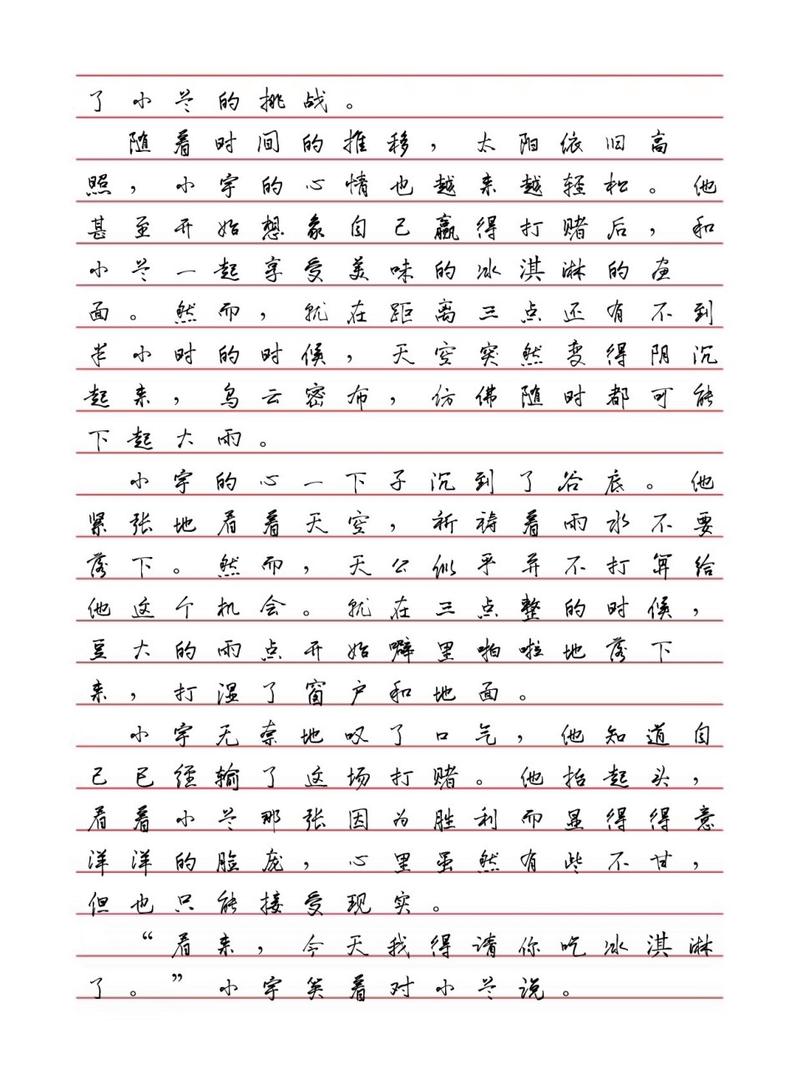 了小兰的挑战。
随着时间的推移，太阳依旧高
照，小宇的心情也越来越轻松。他
甚至开始想象自己赢得打赌后，和
小兰一起享受美味的冰淇淋的画
面。然而，就在距离三点还有不到
半小时的时候，天空突然变得阴沉
起来，乌云密布，仿佛随时都可能
下起大雨。
小宇的心一下子沉到了谷底。他
紧张地看着天空，祈祷着雨水不要
落下。然而，天公似乎并不打算给
他这个机会。就在三点整的时候，
豆大的雨点开始噼里啪啦地落下
来，打湿了窗户和地面。
小宇无奈地叹了口气，他知道自
己已经输了这场打赌。他抬起头，
看着小兰那张因为胜利而显得得意
洋洋的脸庞，心里虽然有些不甘，
但也只能接受现实。
“看来，今天我得请你吃冰淇淋
了。”小宇笑着对小兰说。